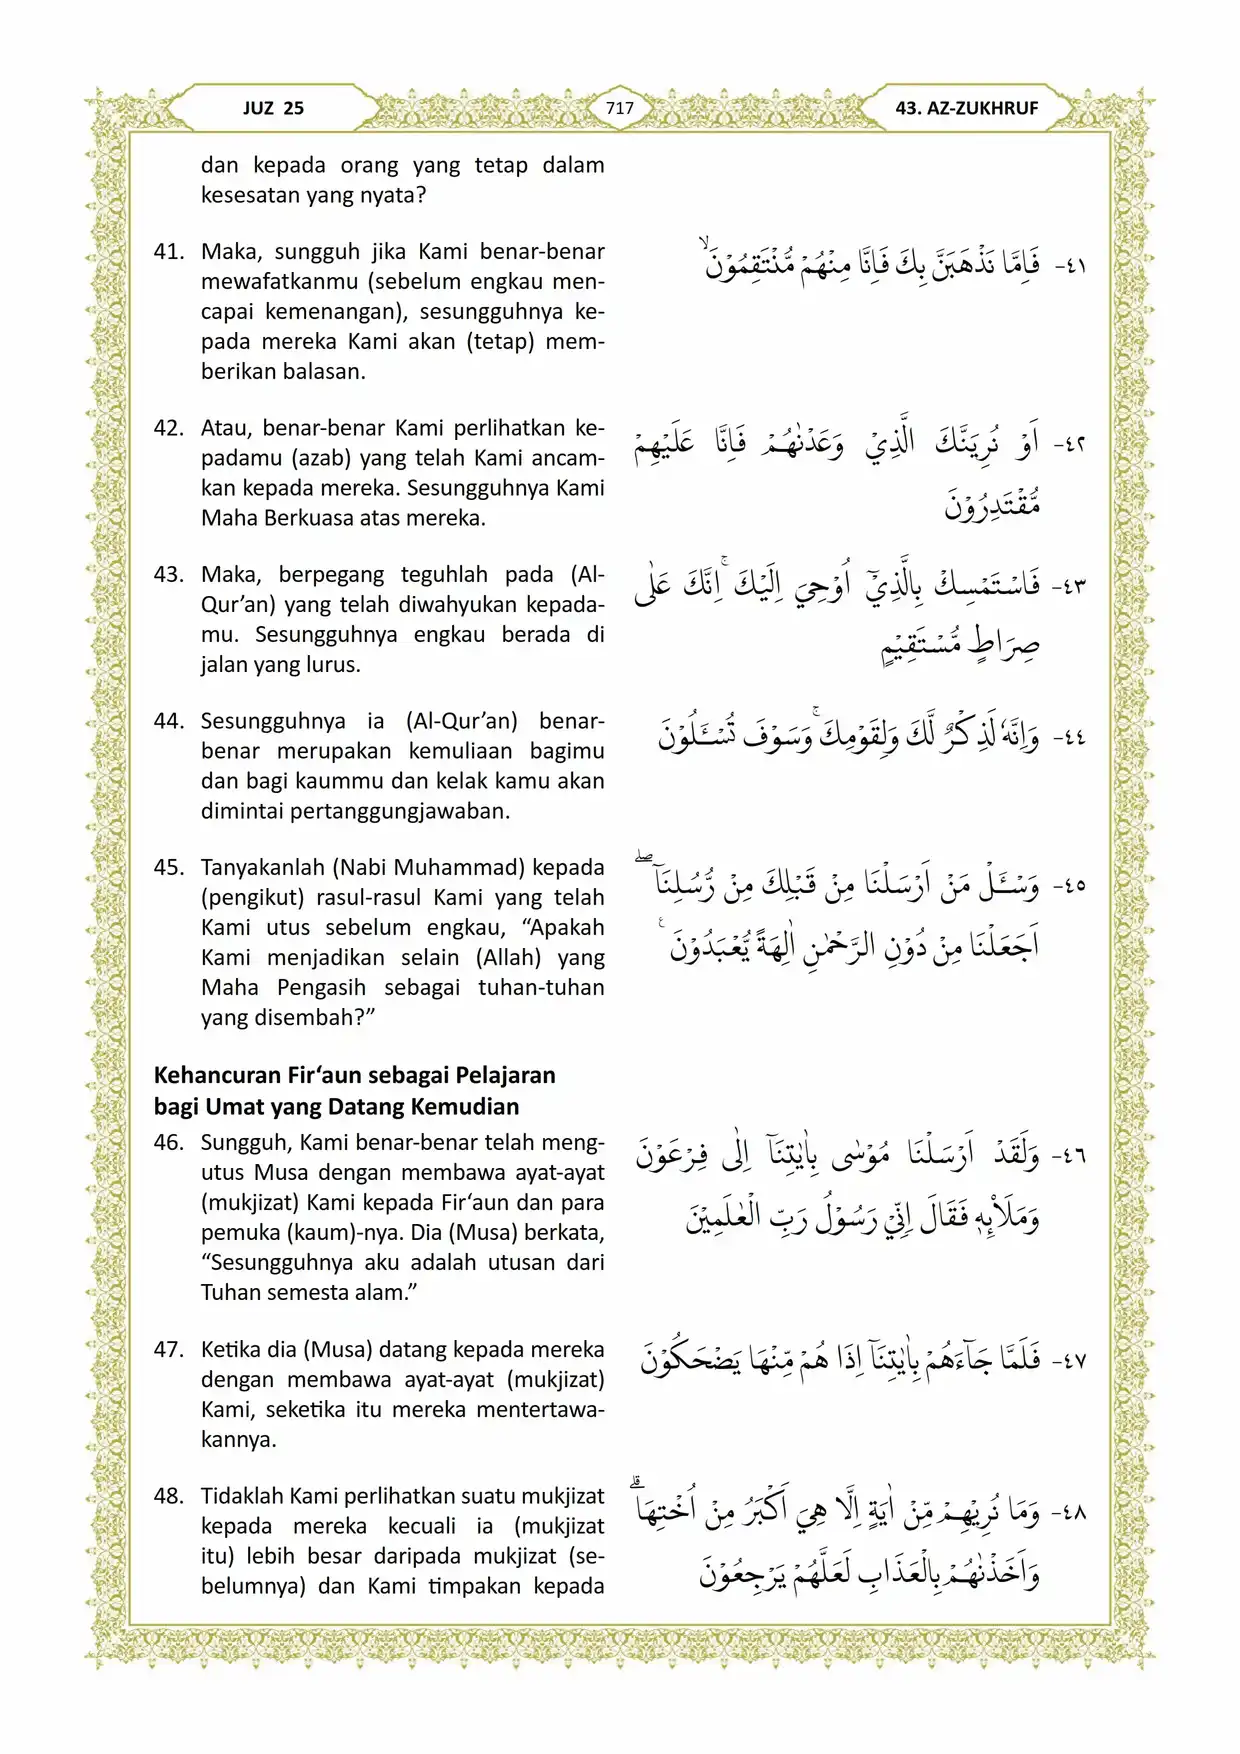 JUZ 25
717
43. AZ-ZUKHRUF
dan kepada orang yang tetap dalam
kesesatan yang nyata?
41. Maka, sungguh jika Kami benar-benar
mewafatkanmu (sebelum engkau men-
capai kemenangan), sesungguhnya ke-
pada mereka Kami akan (tetap) mem-
berikan balasan.
٤١- فَاِمَّا نَذْهَبَنَّ بِكَ فَاِنَّا مِنْهُمْ مُّنْتَقِمُوْنَۙ
42. Atau, benar-benar Kami perlihatkan ke-
padamu (azab) yang telah Kami ancam-
kan kepada mereka. Sesungguhnya Kami
Maha Berkuasa atas mereka.
٤٢- اَوْ نُرِيَنَّكَ الَّذِيْ وَعَدْنٰهُمْ فَاِنَّا عَلَيْهِمْ
مُّقْتَدِرُوْنَ
43. Maka, berpegang teguhlah pada (Al-
Qur’an) yang telah diwahyukan kepada-
mu. Sesungguhnya engkau berada di
jalan yang lurus.
٤٣- فَاسْتَمْسِكْ بِالَّذِيْٓ اُوْحِيَ اِلَيْكَ ۚاِنَّكَ عَلٰى
صِرَاطٍ مُّسْتَقِيْمٍ
44. Sesungguhnya ia (Al-Qur’an) benar-
benar merupakan kemuliaan bagimu
dan bagi kaummu dan kelak kamu akan
dimintai pertanggungjawaban.
٤٤- وَاِنَّهٗ لَذِكْرٌ لَّكَ وَلِقَوْمِكَ ۚوَسَوْفَ تُسْـَٔلُوْنَ
45. Tanyakanlah (Nabi Muhammad) kepada
(pengikut) rasul-rasul Kami yang telah
Kami utus sebelum engkau, “Apakah
Kami menjadikan selain (Allah) yang
Maha Pengasih sebagai tuhan-tuhan
yang disembah?”
٤٥- وَسْـَٔلْ مَنْ اَرْسَلْنَا مِنْ قَبْلِكَ مِنْ رُّسُلِنَآ ۖ
اَجَعَلْنَا مِنْ دُوْنِ الرَّحْمٰنِ اٰلِهَةً يُّعْبَدُوْنَ ࣖ
Kehancuran Fir‘aun sebagai Pelajaran
bagi Umat yang Datang Kemudian
46. Sungguh, Kami benar-benar telah meng-
utus Musa dengan membawa ayat-ayat
(mukjizat) Kami kepada Fir‘aun dan para
pemuka (kaum)-nya. Dia (Musa) berkata,
“Sesungguhnya aku adalah utusan dari
Tuhan semesta alam.”
٤٦- وَلَقَدْ اَرْسَلْنَا مُوْسٰى بِاٰيٰتِنَآ اِلٰى فِرْعَوْنَ
وَمَلَا۟ىِٕهٖ فَقَالَ اِنِّيْ رَسُوْلُ رَبِّ الْعٰلَمِيْنَ
47. Ketika dia (Musa) datang kepada mereka
dengan membawa ayat-ayat (mukjizat)
Kami, seketika itu mereka mentertawa-
kannya.
٤٧- فَلَمَّا جَاۤءَهُمْ بِاٰيٰتِنَآ اِذَا هُمْ مِّنْهَا يَضْحَكُوْنَ
48. Tidaklah Kami perlihatkan suatu mukjizat
kepada mereka kecuali ia (mukjizat
itu) lebih besar daripada mukjizat (se-
belumnya) dan Kami timpakan kepada
٤٨- وَمَا نُرِيْهِمْ مِّنْ اٰيَةٍ اِلَّا هِيَ اَكْبَرُ مِنْ اُخْتِهَاۗ
وَاَخَذْنٰهُمْ بِالْعَذَابِ لَعَلَّهُمْ يَرْجِعُوْنَ